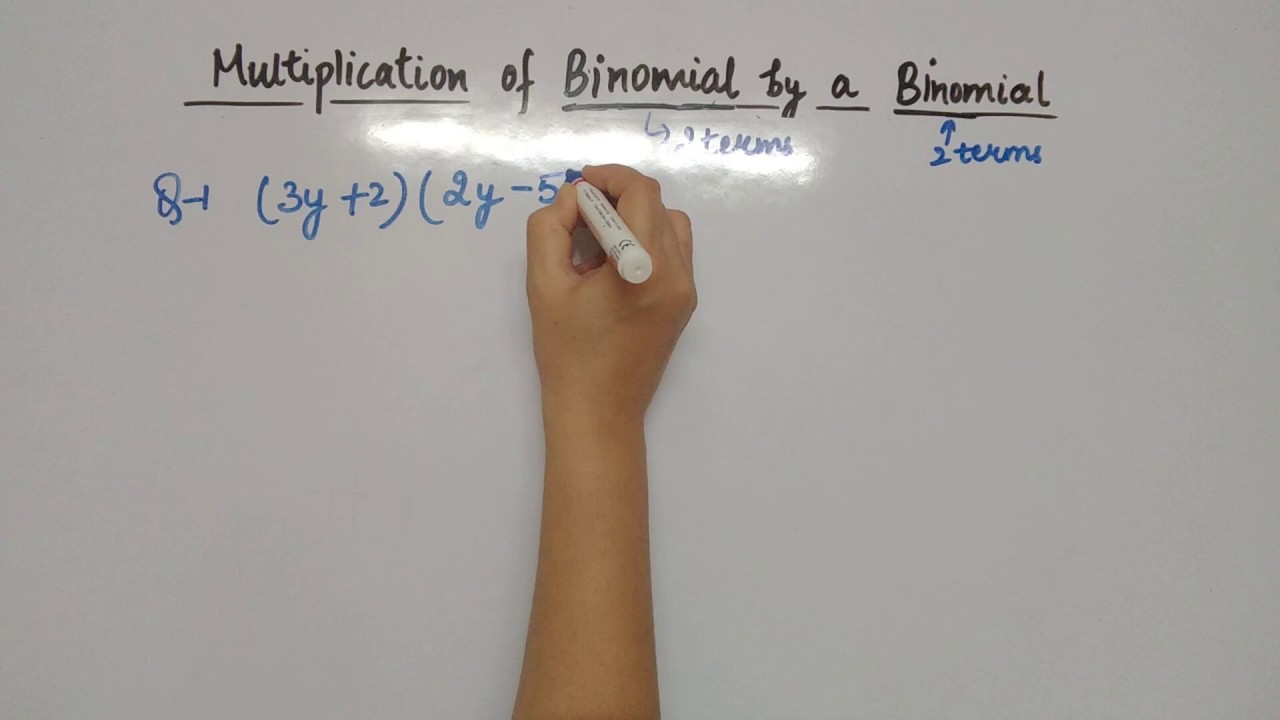 Multiplication of Binomial by a Binomial
↳ 2 terms
↑
2 terms
Q-1 (3y +2) (2y - 5